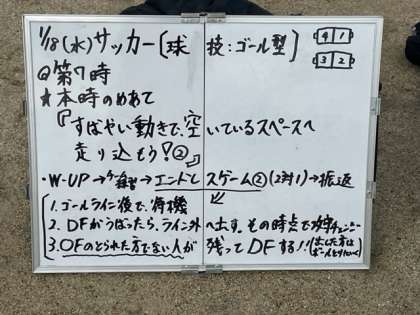 1/18(水)サッカー〔球技:ゴール型〕
4 1
3 2
◎第7時
★本時のめあて
『すばやい動きで、空いているスペースへ
走り込もう!②』
・W-UP→ケ練習→エンドレスゲーム②(2対1)→振返
1.ゴールライン後で、待機
2.DFがうばったら、ライン外へ出す。その時点で攻守チェンジ
3.OFのとられた方でない人が残ってDFする!!